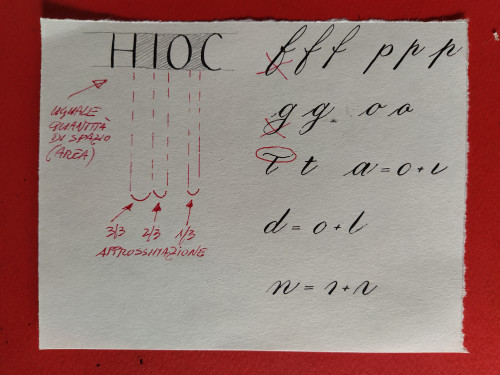 HIOC
UGUALE
QUANTITÀ
DI SPAZIO
(AREA)
3/3 2/3 1/3
APPROSSIMAZIONE
f f f p p p
g g o o
T t a = o + ι
d = o + l
n = ı + r